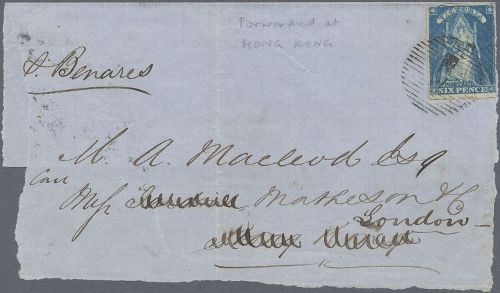 Forwarded at
HONG KONG
VICTORIA
SIX PENCE
p. Benares
M. A. Macleod Esq
Care
Mess Matheson & Co
London